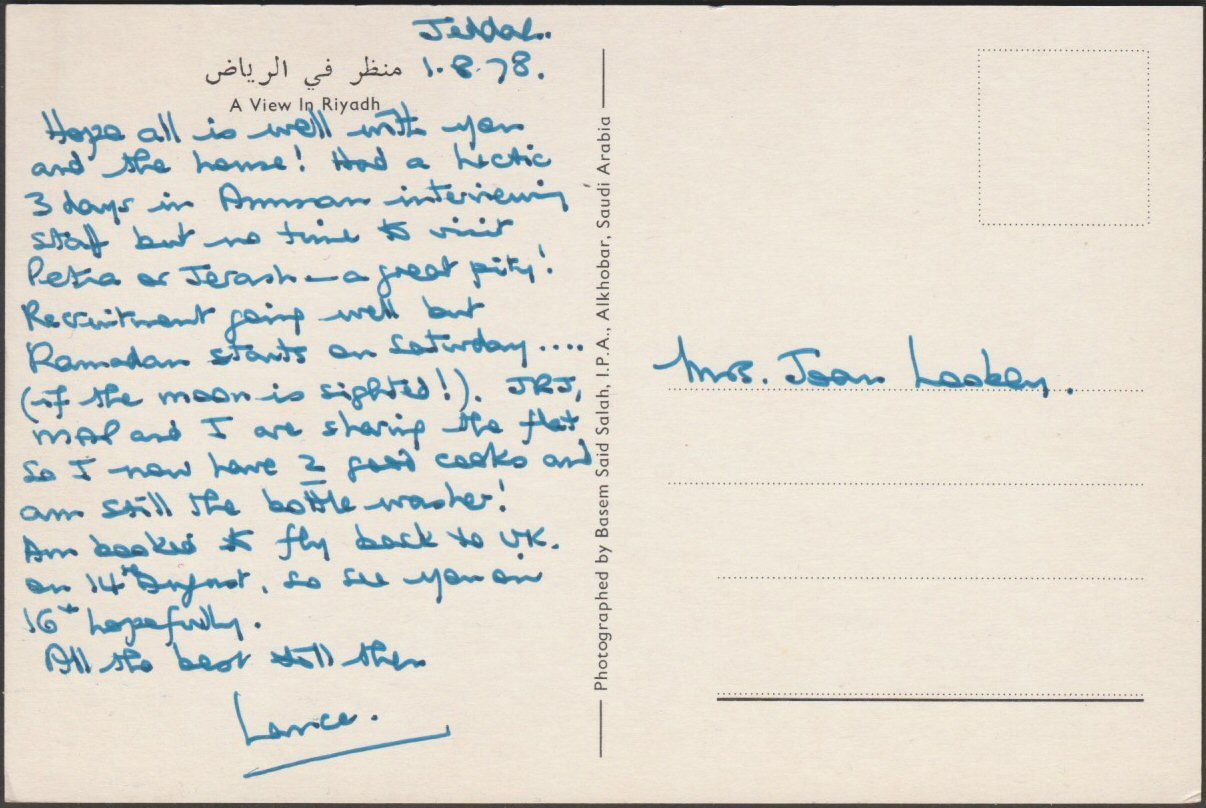 Jeddah.
1.8.78.
منظر في الرياض
A View In Riyadh
Hope all is well with you
and the house! Had a hectic
3 days in Amman interviewing
staff but no time to visit
Petra or Jerash – a great pity!
Recruitment going well but
Ramadan starts on Saturday ....
(if the moon is sighted!). JRJ,
MAP and I are sharing the flat,
so I now have 2 good cooks and
am still the bottle washer!
Am booked to fly back to UK.
on 14th August, so see you on
16th hopefully.
All the best till then
Lance.
Photographed by Basem Said Salah, I.P.A., Alkhobar, Saudi Arabia
Mrs. Joan